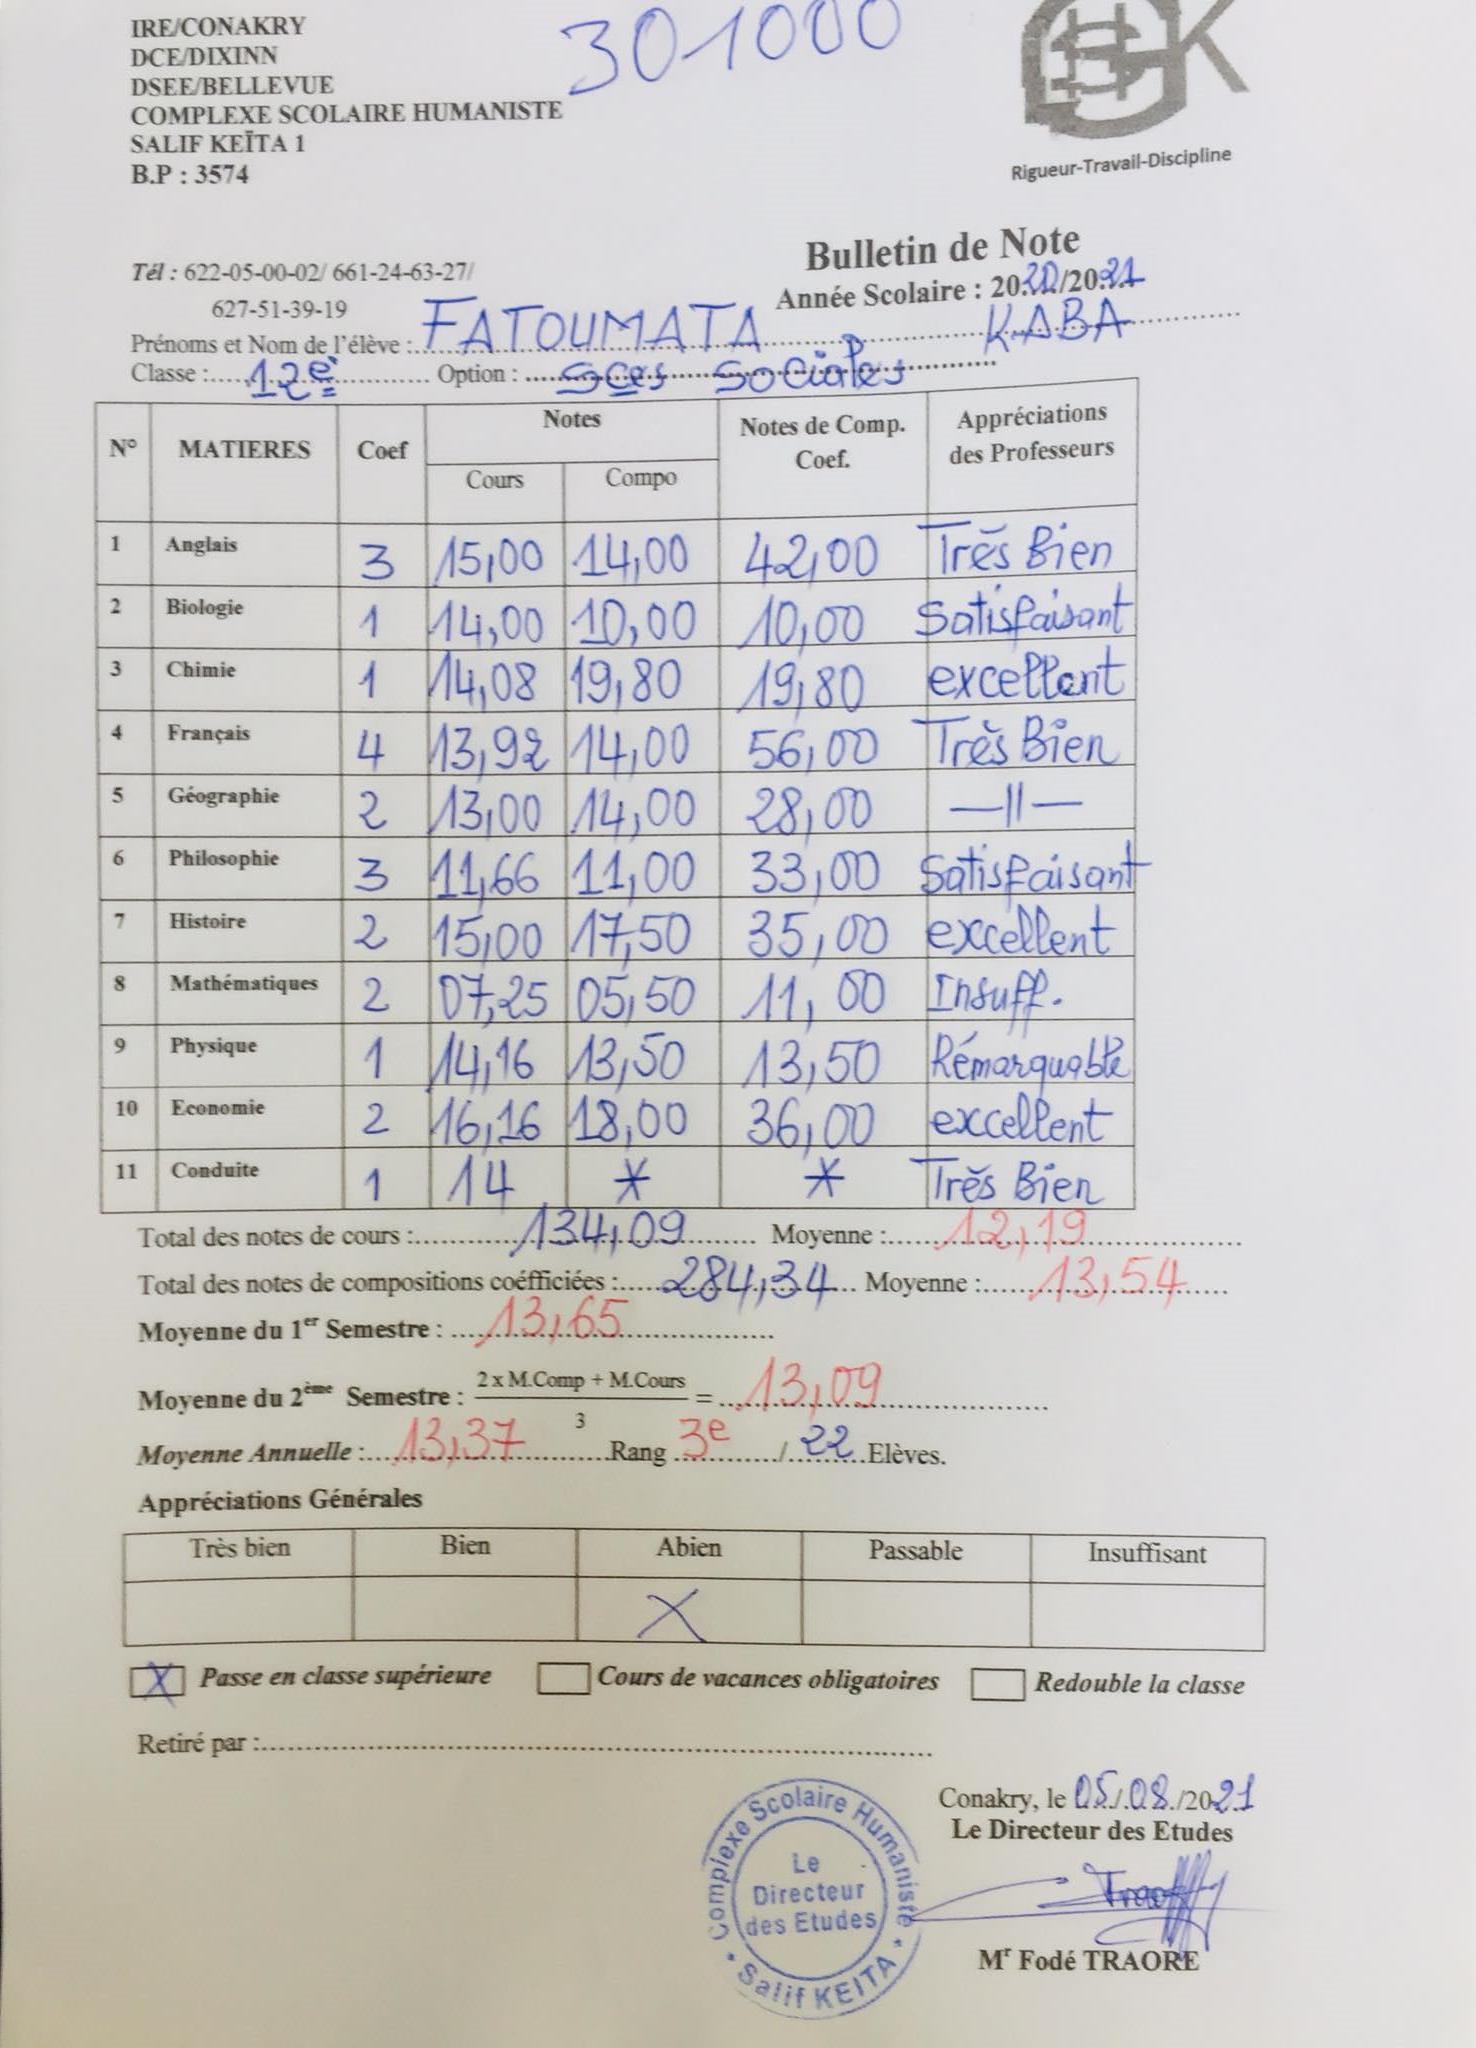 IRE/CONAKRY
DCE/DIXINN
DSEE/BELLEVUE
COMPLEXE SCOLAIRE HUMANISTE
SALIF KEÏTA 1
B.P : 3574
301000
Rigueur-Travail-Discipline
Tél : 622-05-00-02/ 661-24-63-27/
627-51-39-19
Bulletin de Note
Année Scolaire : 2020/2021
Prénoms et Nom de l'élève : FATOUMATA KABA
Classe : 12e Option : Sces Sociales
N° MATIERES Coef Notes Notes de Comp. Coef. Appréciations des Professeurs
Cours Compo
1 Anglais 3 15,00 14,00 42,00 Très Bien
2 Biologie 1 14,00 10,00 10,00 Satisfaisant
3 Chimie 1 14,08 19,80 19,80 excellent
4 Français 4 13,92 14,00 56,00 Très Bien
5 Géographie 2 13,00 14,00 28,00 —||—
6 Philosophie 3 11,66 11,00 33,00 Satisfaisant
7 Histoire 2 15,00 17,50 35,00 excellent
8 Mathématiques 2 07,25 05,50 11,00 Insuff.
9 Physique 1 14,16 13,50 13,50 Rémarquable
10 Economie 2 16,16 18,00 36,00 excellent
11 Conduite 1 14 * * Très Bien
Total des notes de cours : 134,09 Moyenne : 12,19
Total des notes de compositions coéfficiées : 284,34 Moyenne : 13,54
Moyenne du 1er Semestre : 13,65
Moyenne du 2ème Semestre : 2 x M.Comp + M.Cours / 3 = 13,09
Moyenne Annuelle : 13,37 Rang 3e / 22 Elèves.
Appréciations Générales
Très bien Bien Abien Passable Insuffisant
X
X Passe en classe supérieure Cours de vacances obligatoires Redouble la classe
Retiré par :
Conakry, le 05/08/2021
Le Directeur des Etudes
Complexe Scolaire Humaniste
Le
Directeur
des Etudes
* Salif KEITA *
Mr Fodé TRAORE